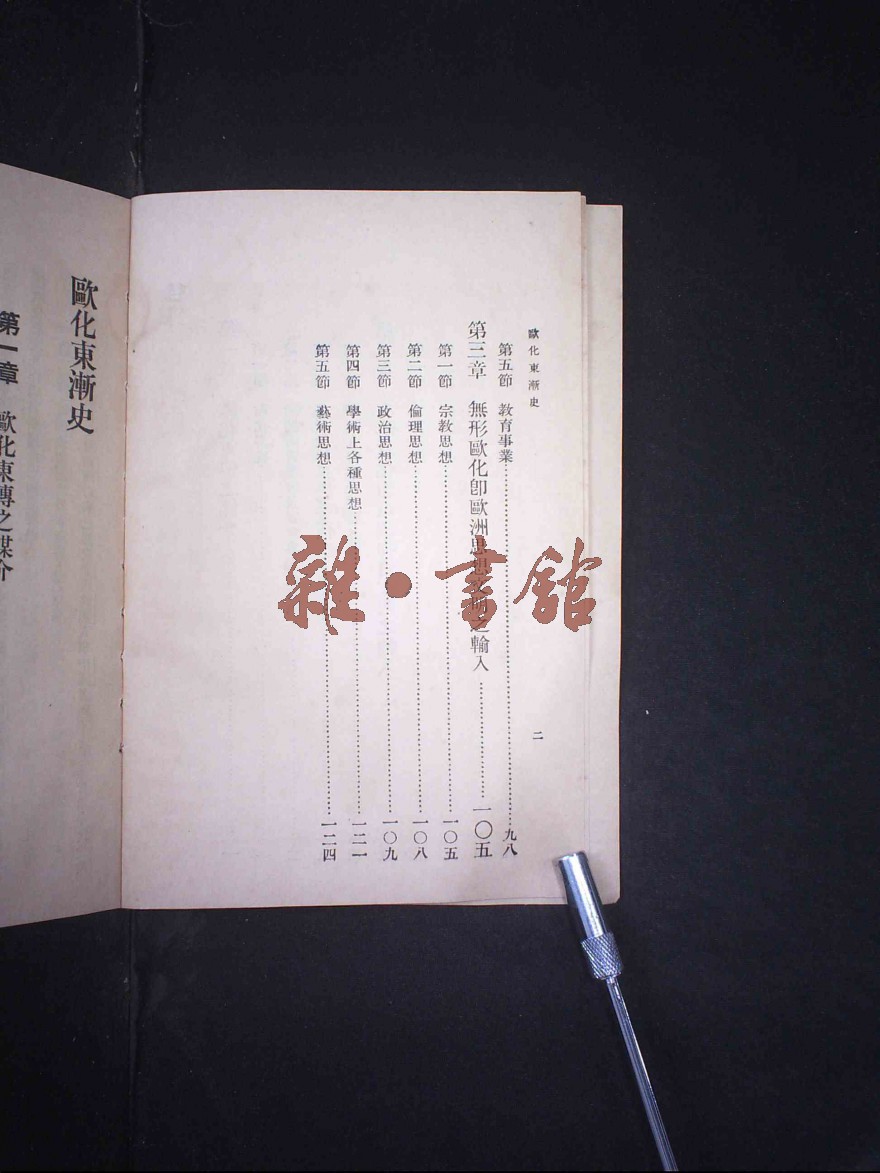 歐化東漸史
二
第五節 教育事業 九八
第三章 無形歐化即歐洲思想文明之輸入 一〇五
第一節 宗教思想 一〇五
第二節 倫理思想 一〇八
第三節 政治思想 一〇九
第四節 學術上各種思想 一二一
第五節 藝術思想 一二四
歐化東漸史
第一章 歐化東傳之媒介
雜·書館